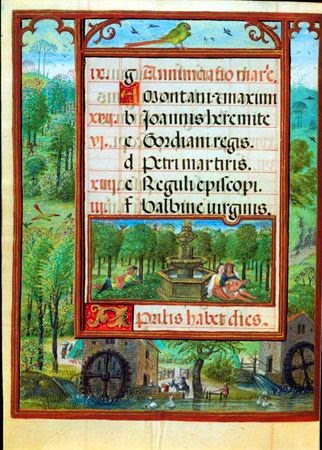 ix. g Annunciatio marie.
A Montani maximi
xvij. b Joannis heremite
vj. c Gordiani regis.
d Petri martiris.
xiiij. e Reguli episcopi.
iij. f balbine virginis.
Aprilis habet dies.